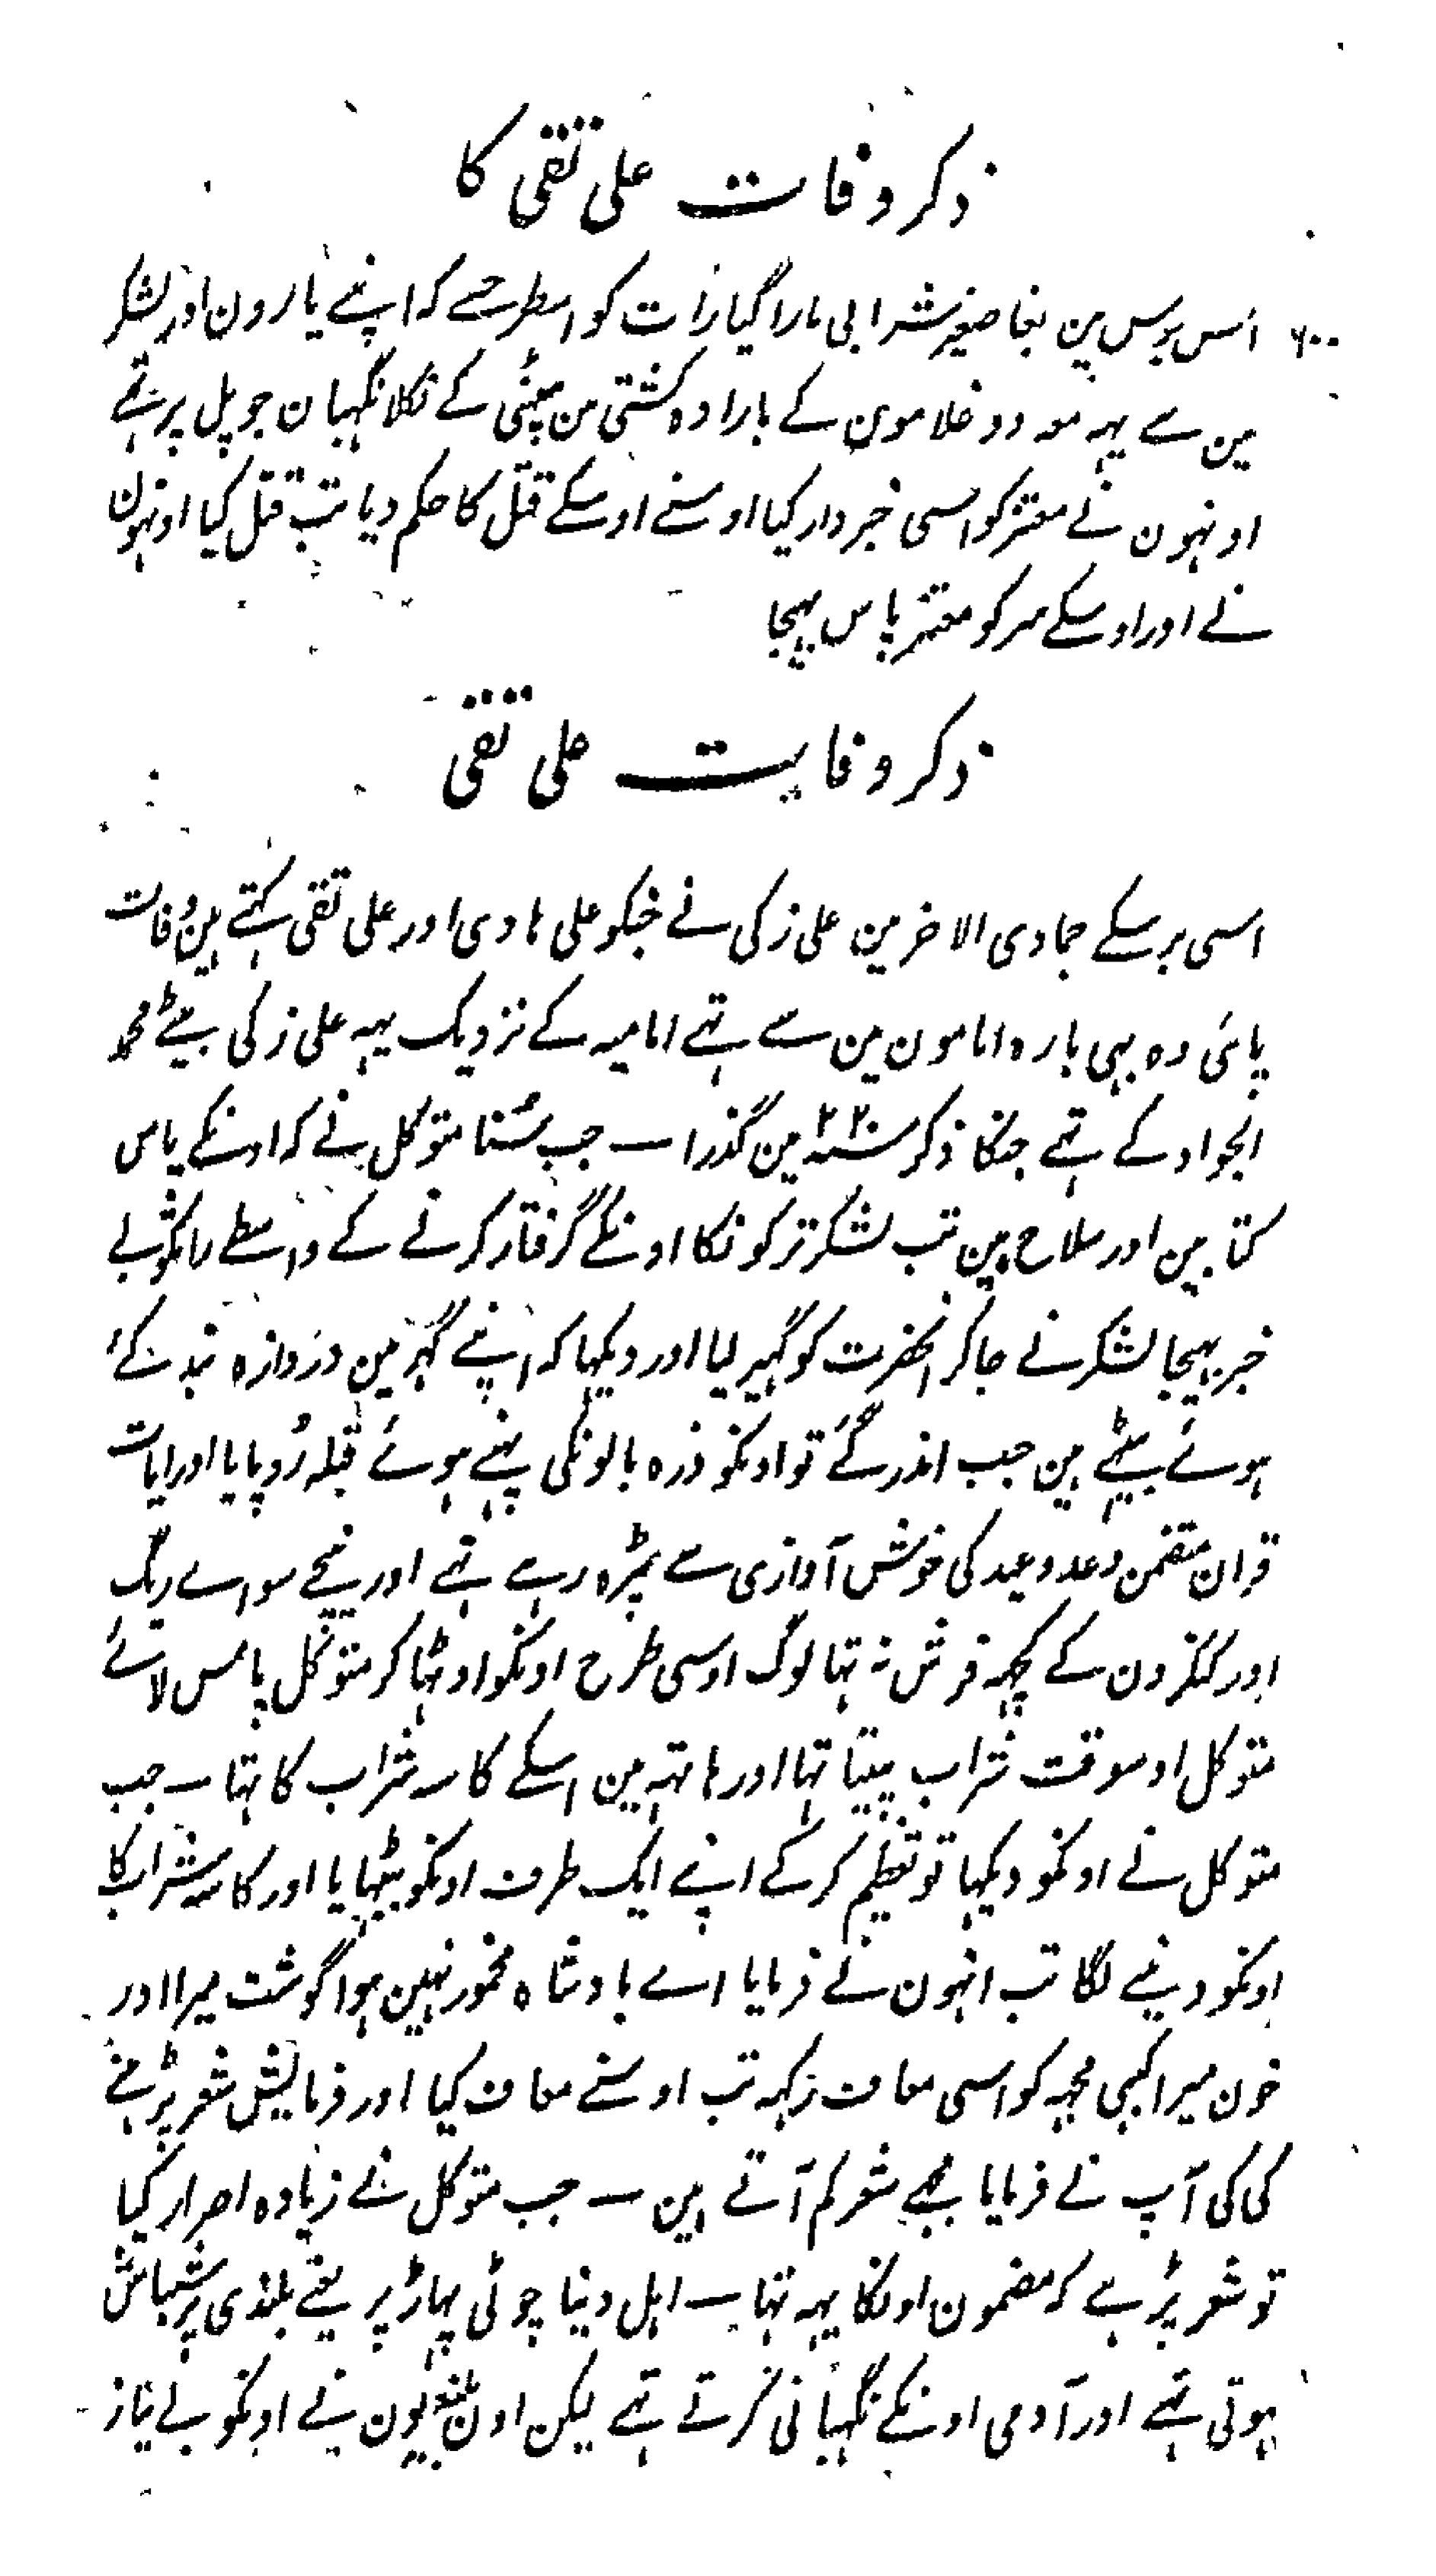 ذکر وفات علی تقی کا
۶۰۰ اس برس مین بغا صغیر شرابی مارا گیا رات کو اسطرحسے کہ اپنے یارون اور لشکر
مین سے یہہ معہ دو غلامون کے بارادہ کشتی من بیٹھنی کے نکلا نگہبان جو پل پر تہے
اونہون نے معتز کو اسی خبردار کیا اوسنے اوسکے قتل کا حکم دیا تب قتل کیا اونہون
نے اور اوسکے سر کو معتز پاس بہیجا
ذکر وفات علی تقی
اسی برسکے جمادی الاخر مین علی زکی نے جنکو علی ہادی اور علی تقی کہتے ہین وفات
پائی وہ بہی بارہ امامون مین سے تہے امامیہ کے نزدیک یہہ علی زکی بیٹے محمد
الجواد کے تہے جنکا ذکر سنہ ۲۲۰ مین گذرا ــ جب سُنا متوکل نے کہ اونکے پاس
کتابین اور سلاح ہین تب لشکر ترکونکا اونکے گرفتار کرنے کے واسطے راتکو بے
خبر بہیجا لشکر نے جاکر انحضرت کو گہیر لیا اور دیکہا کہ اپنے گہر مین دروازہ بند کئے
ہوئے بیٹہے ہین جب اندر گئے تو اونکو ذرہ بالونکی پہنے ہوئے قبلہ رُو پایا اور ایات
قران متضمن وعد وعید کی خوش آوازی سے پڑہ رہے تہے اور نیچے سواے ریگ
اور کنکرون کے کچہہ فرش نہ تہا لوگ اوسی طرح اونکو اوٹہا کر متوکل پاس لائے
متوکل اوسوقت شراب پیتا تہا اور ہاتہہ مین اسکے کاسہ شراب کا تہا ــ جب
متوکل نے اونکو دیکہا تو تعظیم کرکے اپنے ایک طرف اونکو بیٹہایا اور کاسہ شراب کا
اونکو دینے لگا تب انہون نے فرمایا اے بادشاہ مخمور نہین ہوا گوشت میرا اور
خون میرا کبہی مجہہ کو اسی معاف رکہہ تب اوسنے معاف کیا اور فرمایش شعر پڑہنے
کی کی آپ نے فرمایا مجہے شعر کم آتے ہین ــ جب متوکل نے زیادہ اصرار کیا
تو شعر پڑہے کہ مضمون اونکا یہہ تہا ــ اہل دنیا چوٹی پہاڑ پر یعنے بلندی پر شباش
ہوتی تہے اور آدمی اونکے نگہبانی کرتے تہے لیکن اون بلندیون نے اونکو بے نیاز